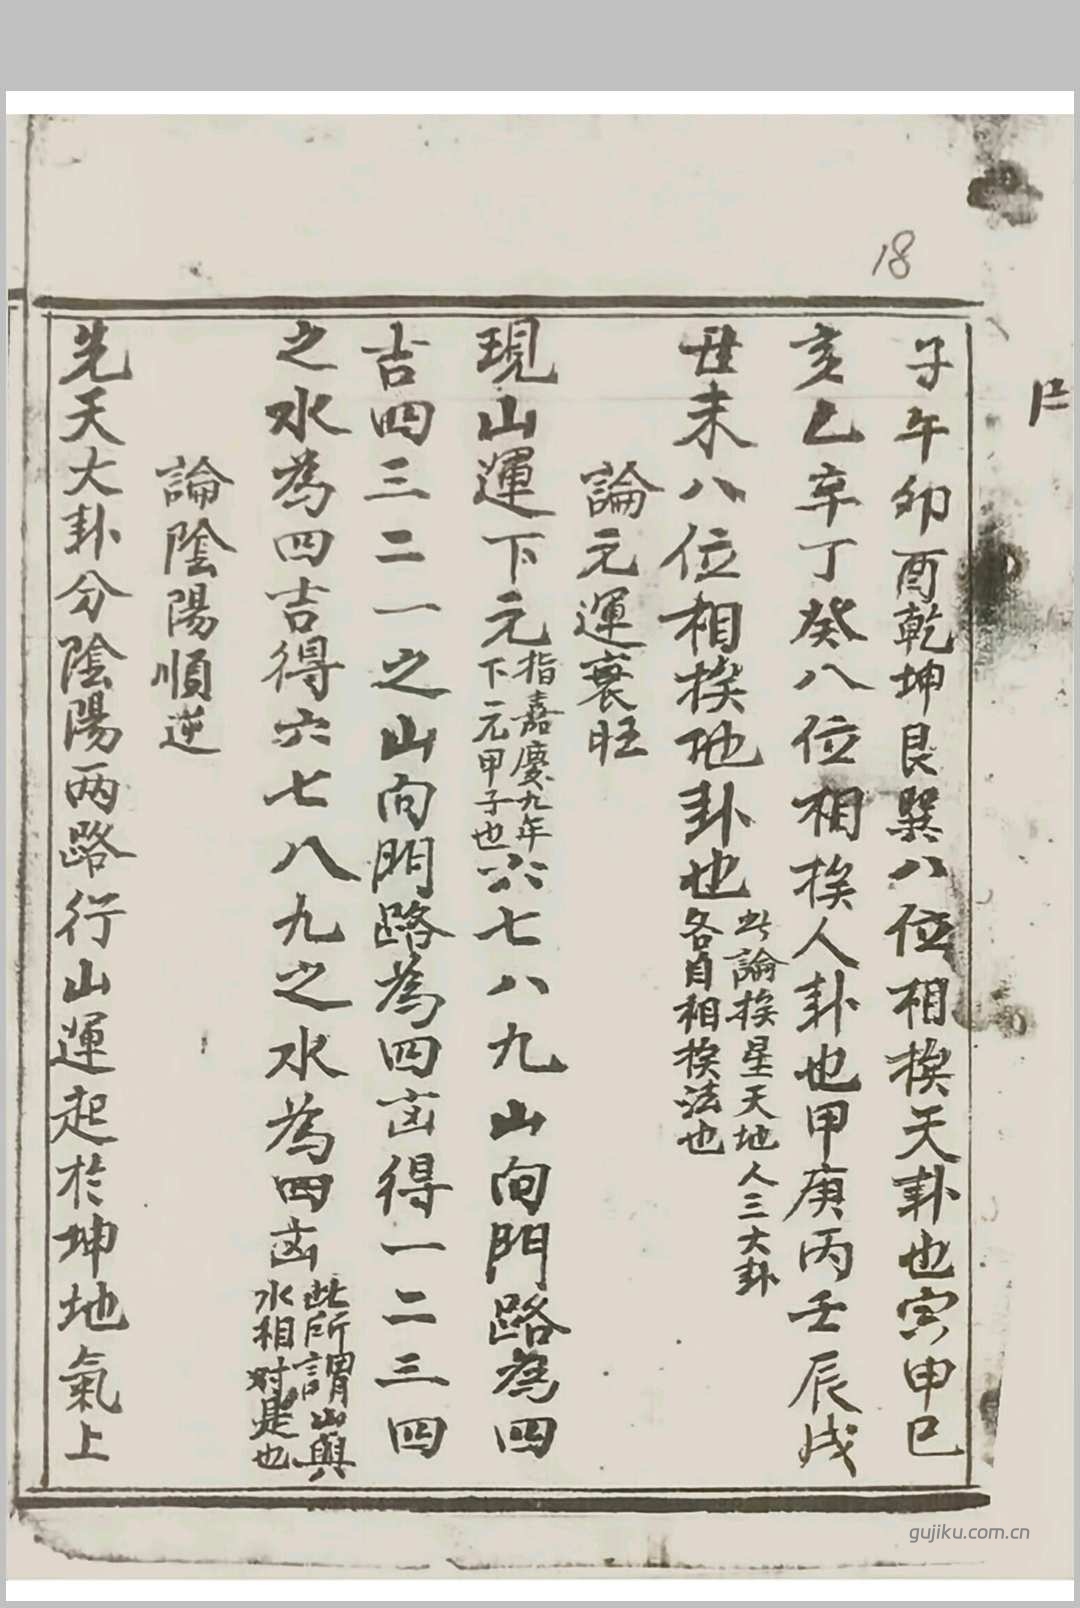 18
子午卯酉乾坤艮巽八位相挨天卦也寅申巳
亥乙辛丁癸八位相挨人卦也甲庚丙壬辰戌
丑未八位相挨地卦也此論挨星天地人三大卦各自相挨法也
論元運衰旺
現山運下元指嘉慶九年下元甲子也六七八九山向門路為四
吉四三二一之山向門路為四凶得一二三四
之水為四吉得六七八九之水為四凶此所謂山與水相對是也
論陰陽順逆
先天大卦分陰陽两路行山運起於坤地氣上
gujiku.com.cn